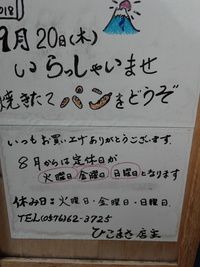 2018
9月20日(木)
いらっしゃいませ
焼きたてパンをどうぞ
いつもお買い上げありがとうございます.
8月からは定休日が
火曜日 金曜日 日曜日となります
休み日:火曜日・金曜日・日曜日.
TEL(0576)62-3725
ひこまさ 店主